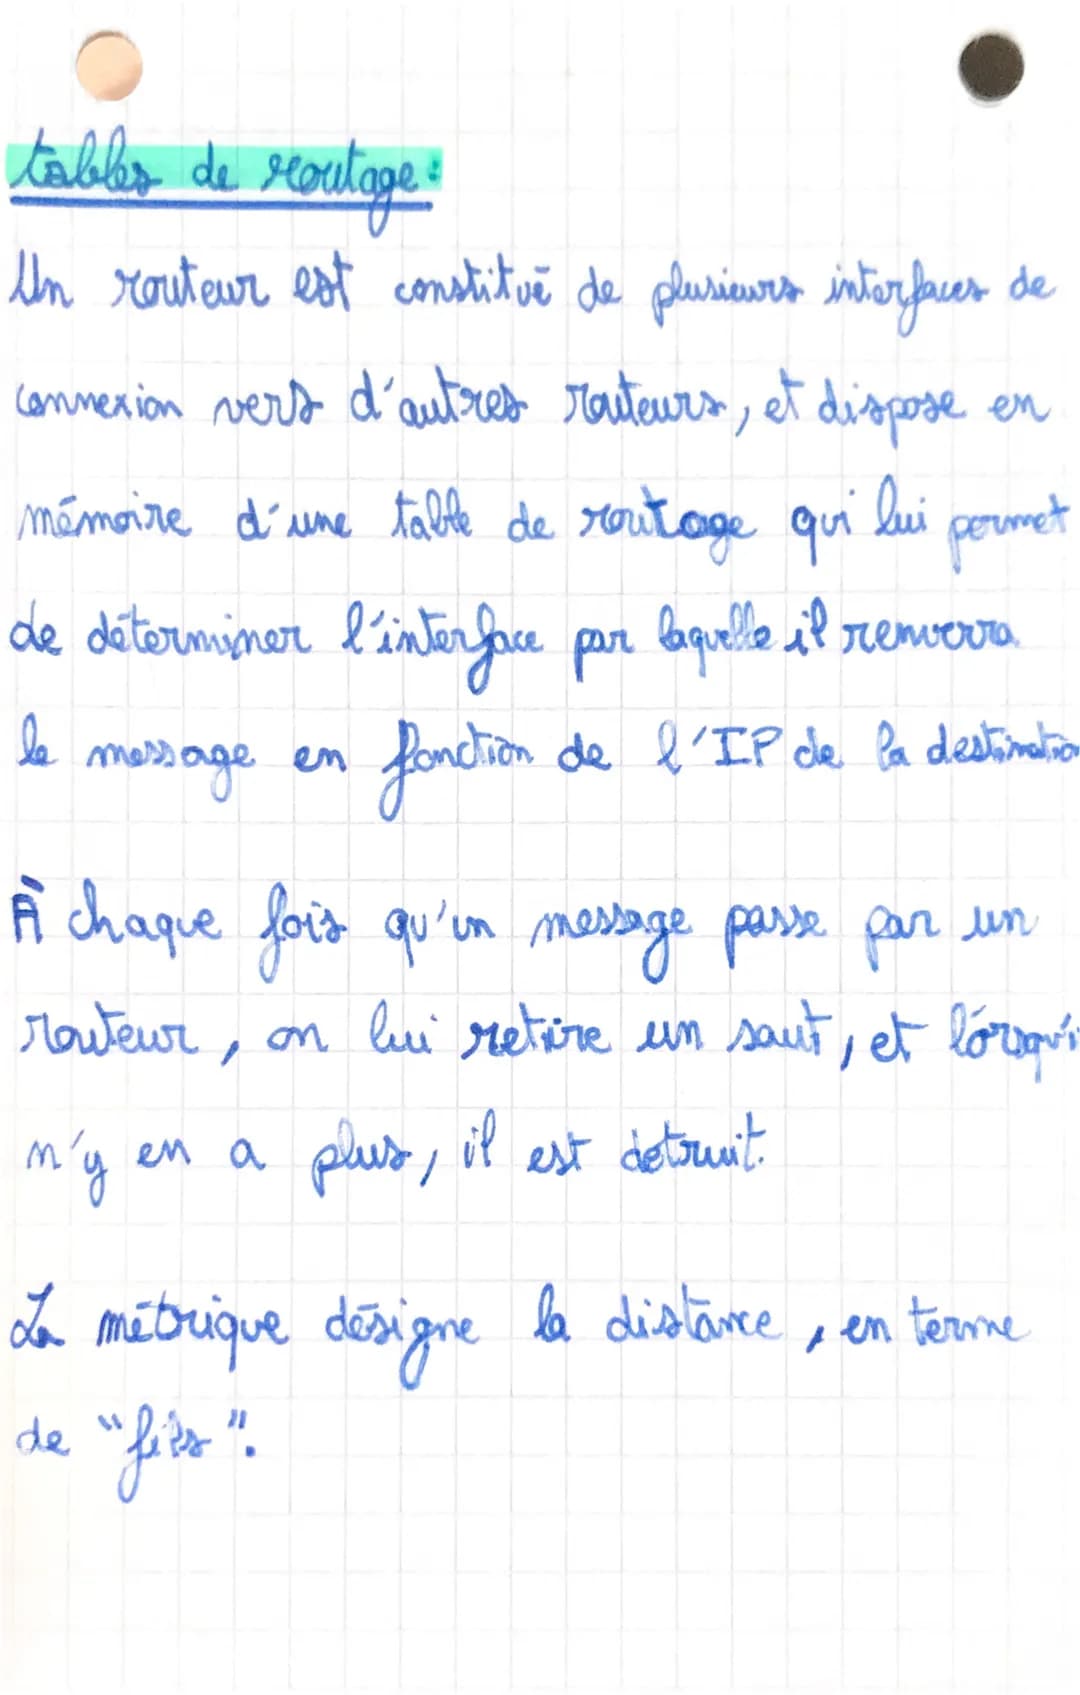 tables de routage :
Un routeur est constitué de plusieurs interfaces de
connexion vers d'autres routeurs, et dispose en
mémoire d'une table de routage qui lui permet
de déterminer l'interface par laquelle il renverra
le message en fonction de l'IP de la destination
À chaque fois qu'un message passe par un
routeur, on lui retire un saut, et lorsqu'i
n'y en a plus, il est détruit.
La métrique désigne la distance, en terme
de "fils".